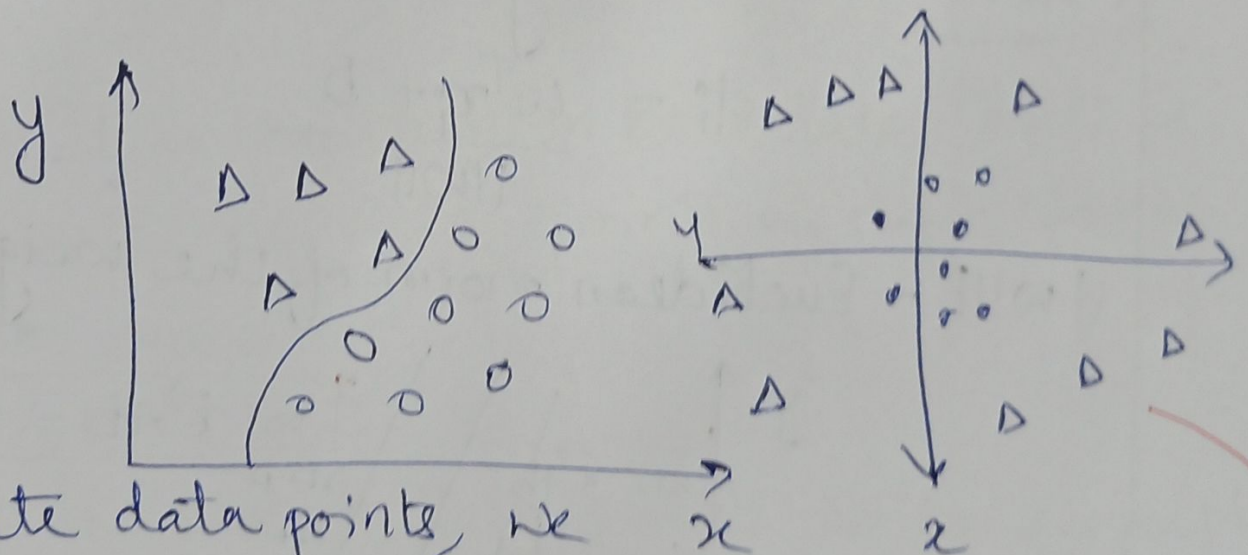 y
y
te data points, we
x
x